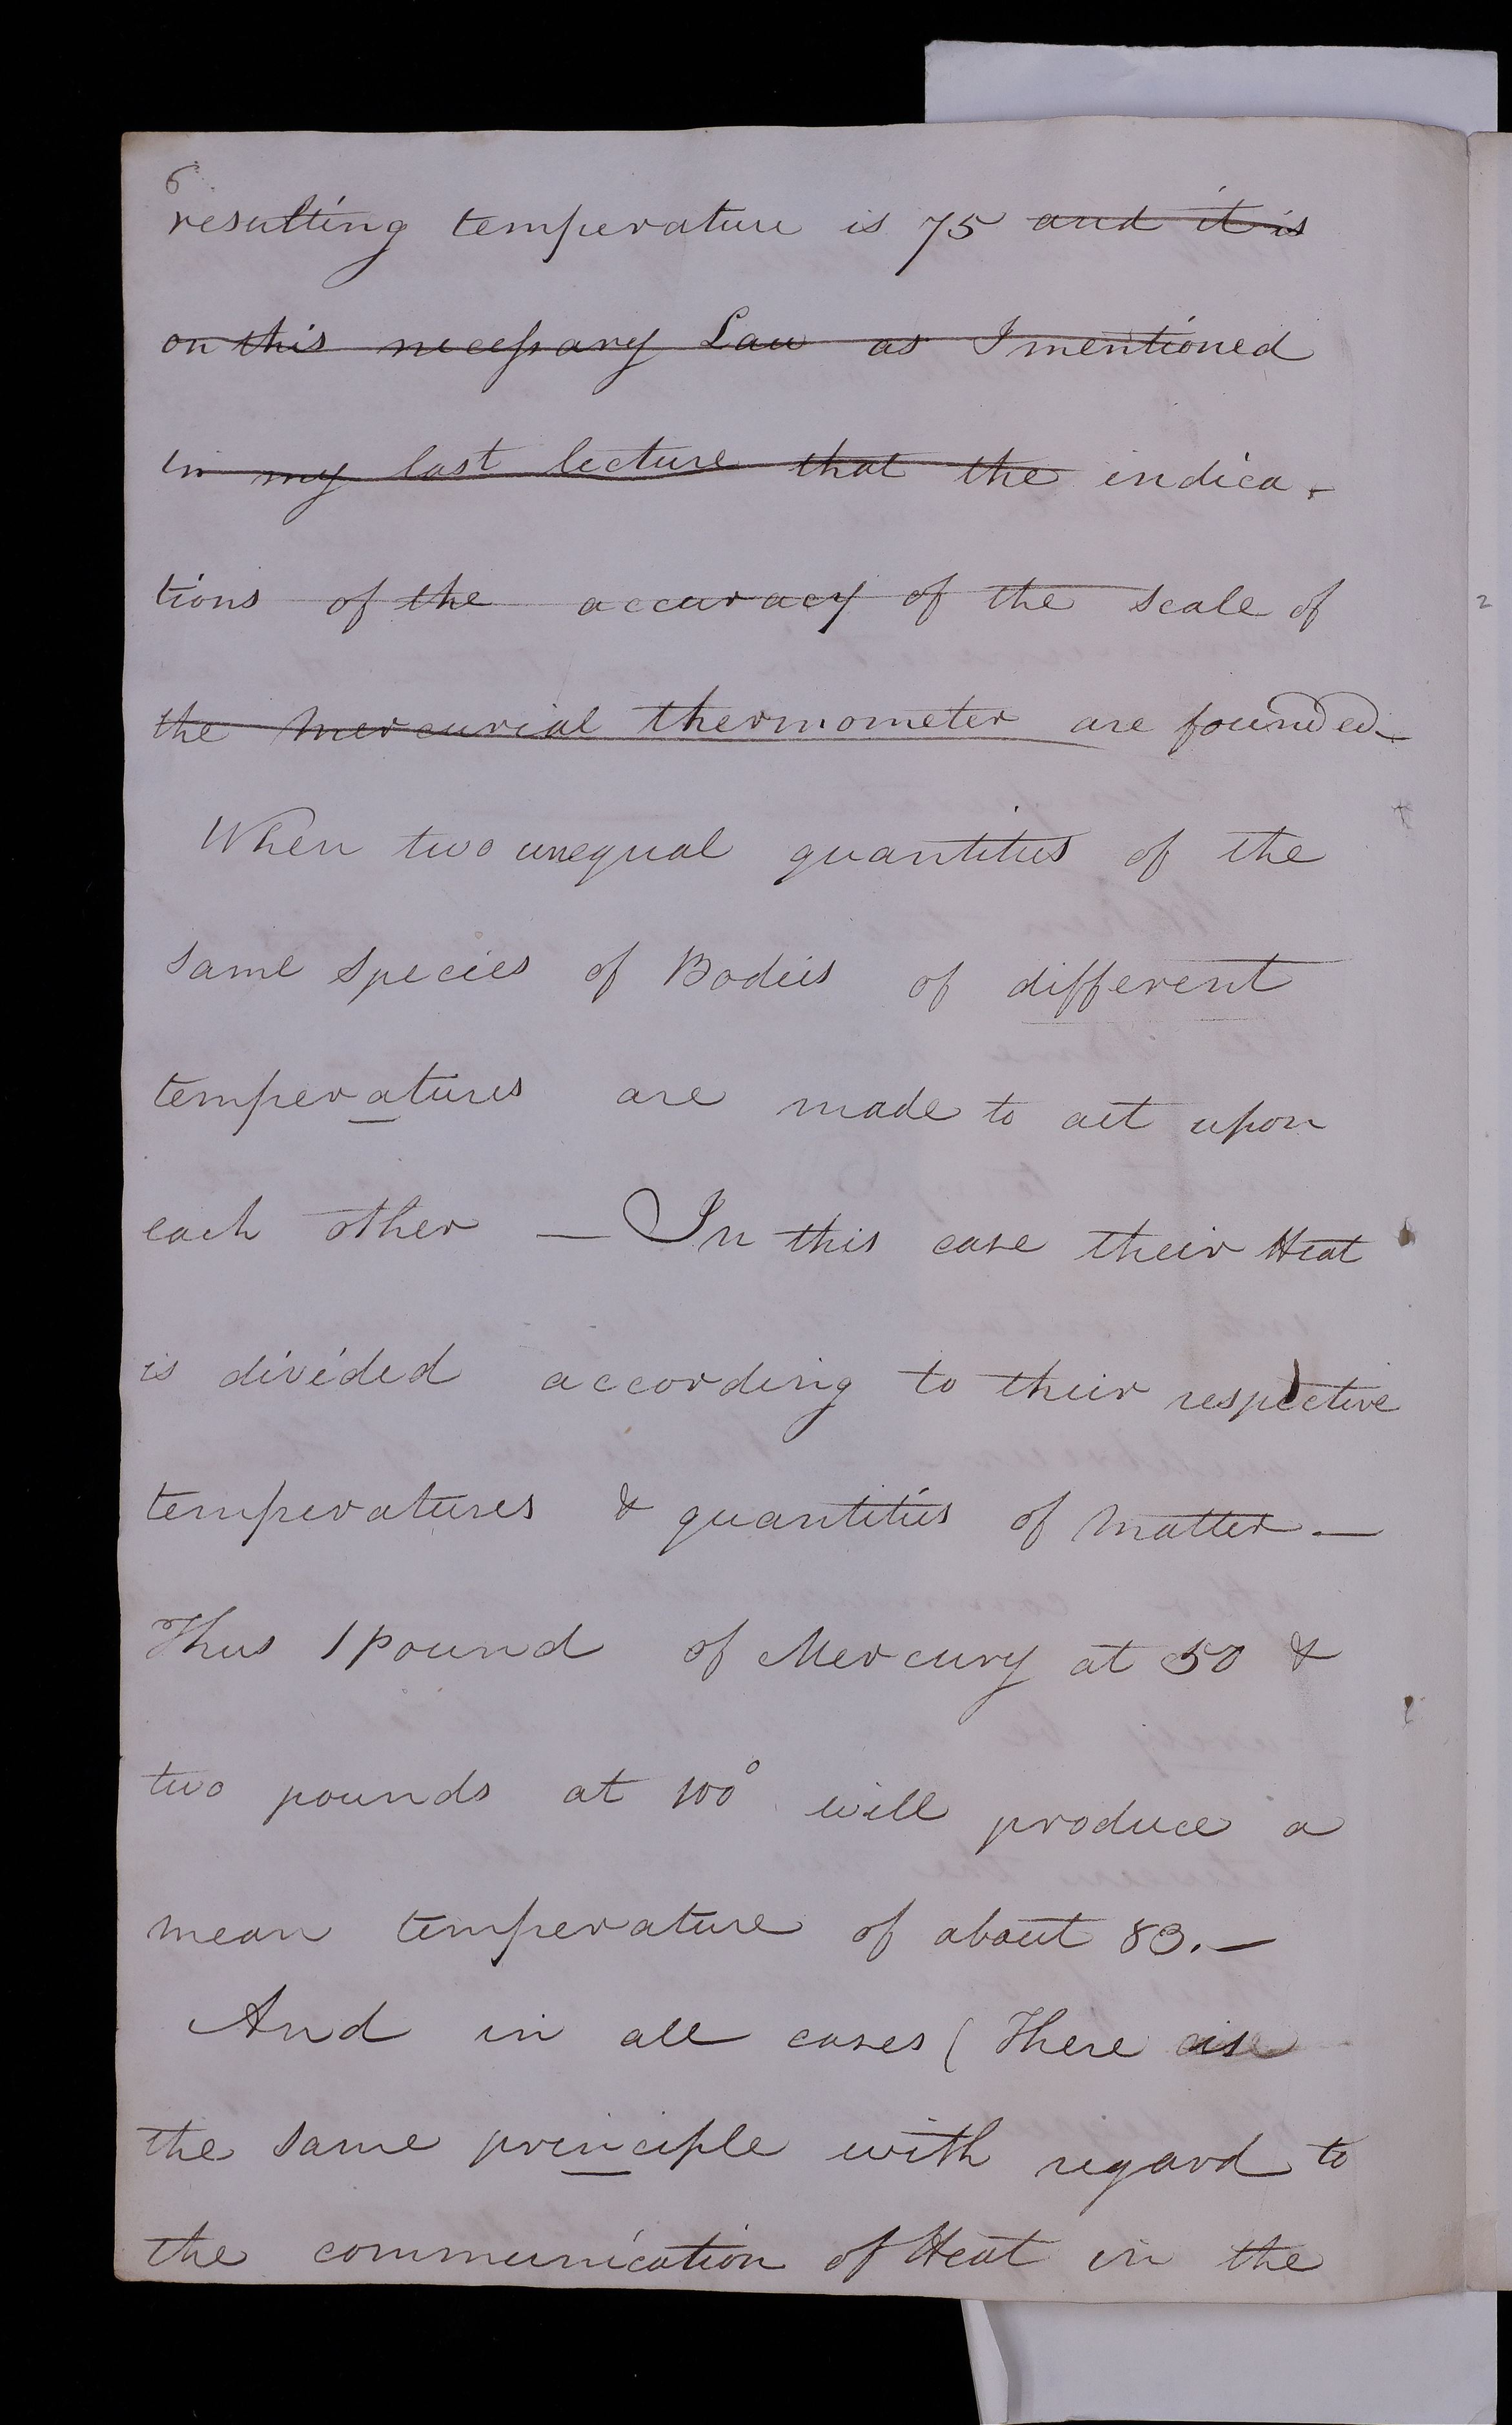 6
resulting temperature is 75 and it is
on this necessary Law as I mentioned
in my last lecture that the indica-
tions of the accuracy of the scale of
the Mercurial thermometer are founded_
When two unequal quantities of the
same species of Bodies of different
temperatures are made to act upon
each other — In this case their Heat
is divided according to their respective
temperatures & quantities of matter —
Thus 1 pound of Mercury at 50 &
two pounds at 100° will produce a
mean temperature of about 83. —
And in all cases ( There is
the same principle with regard to
the communication of Heat in the
2